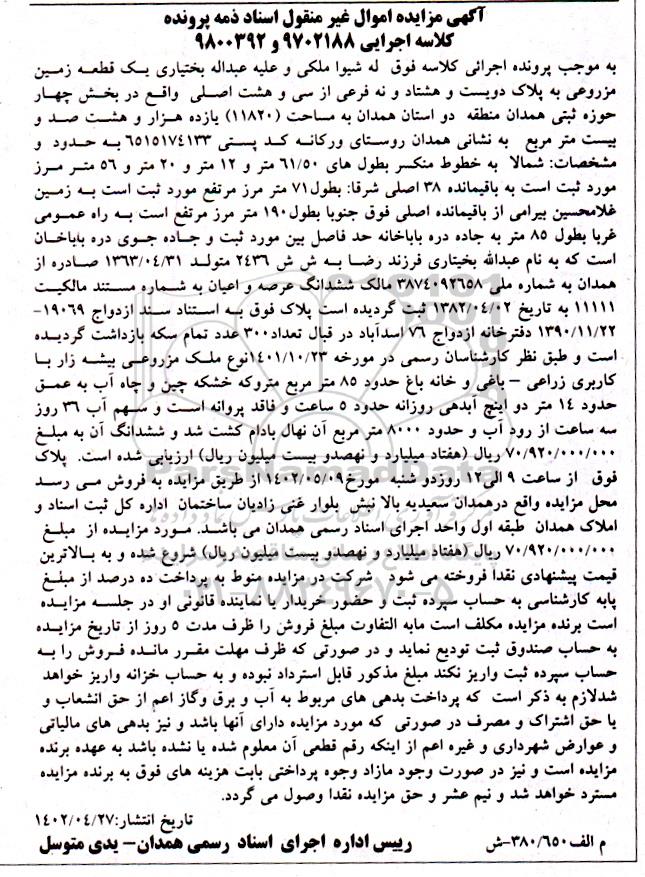 آگهی مزایده اموال غیر منقول اسناد ذمه پرونده
کلاسه اجرایی ۹۷۰۲۱۸۸ و ۹۸۰۰۳۹۲
به موجب پرونده اجرائی کلاسه فوق له شیوا ملکی و علیه عبداله بختیاری یک قطعه زمین
مزروعی به پلاک دویست و هشتاد و نه فرعی از سی و هشت اصلی واقع در بخش چهار
حوزه ثبتی همدان منطقه دو استان همدان به مساحت (۱۱۸۲۰) یازده هزار و هشت صد و
بیست متر مربع به نشانی همدان روستای ورکانه کد پستی ۶۵۱۵۱۷۴۱۳۳ به حدود و
مشخصات: شمالا به خطوط منکسر بطول های ۶۱/۵۰ متر و ۱۲ متر و ۲۰ متر و ۵۶ متر مرز
مورد ثبت است به باقیمانده ۳۸ اصلی شرقا: بطول۷۱ متر مرز مرتفع مورد ثبت است به زمین
غلامحسین بیرامی از باقیمانده اصلی فوق جنوبا بطول۱۹۰ متر مرز مرتفع است به راه عمومی
غربا بطول ۸۵ متر به جاده دره باباخانه حد فاصل بین مورد ثبت و جاده جوی دره باباخان
است که به نام عبدالله بختیاری فرزند رضا به ش ش ۲۴۳۶ متولد ۱۳۶۳/۰۴/۳۱ صادره از
همدان به شماره ملی ۳۸۷۴۰۹۲۶۵۸ مالک ششدانگ عرصه و اعیان به شماره مستند مالکیت
۱۱۱۱۱ به تاریخ ۱۳۸۲/۰۴/۰۲ ثبت گردیده است پلاک فوق به استناد سند ازدواج ۱۹۰۶۹-
۱۳۹۰/۱۱/۲۲ دفترخانه ازدواج ۷۶ اسدآباد در قبال تعداد۳۰۰ عدد تمام سکه بازداشت گردیده
است و طبق نظر کارشناسان رسمی در مورخه ۱۴۰۱/۱۰/۲۳نوع ملک مزروعی بیشه زار با
کاربری زراعی – باغی و خانه باغ حدود ۸۵ متر مربع متروکه خشکه چین و چاه آب به عمق
حدود ۱۴ متر دو اینچ آبدهی روزانه حدود ۵ ساعت و فاقد پروانه است و سهم آب ۳۶ روز
سه ساعت از رود آب و حدود ۸۰۰۰ متر مربع آن نهال بادام کشت شد و ششدانگ آن به مبلغ
۷۰/۹۲۰/۰۰۰/۰۰۰ ریال (هفتاد میلیارد و نهصدو بیست میلیون ریال) ارزیابی شده است. پلاک
فوق از ساعت ۹ الی۱۲ روزدو شنبه مورخ۱۴۰۲/۰۵/۰۹ از طریق مزایده به فروش می رسد
محل مزایده واقع درهمدان سعیدیه بالا نبش بلوار غنی زادیان ساختمان اداره کل ثبت اسناد و
املاک همدان طبقه اول واحد اجرای اسناد رسمی همدان می باشد. مورد مزایده از مبلغ
۷۰/۹۲۰/۰۰۰/۰۰۰ ریال (هفتاد میلیارد و نهصدو بیست میلیون ریال) شروع شده و به بالاترین
قیمت پیشنهادی نقدا فروخته می شود شرکت در مزایده منوط به پرداخت ده درصد از مبلغ
پایه کارشناسی به حساب سپرده ثبت و حضور خریدار یا نماینده قانونی او در جلسه مزایده
است برنده مزایده مکلف است مابه التفاوت مبلغ فروش را ظرف مدت ۵ روز از تاریخ مزایده
به حساب صندوق ثبت تودیع نماید و در صورتی که ظرف مهلت مقرر مانده فروش را به
حساب سپرده ثبت واریز نکند مبلغ مذکور قابل استرداد نبوده و به حساب خزانه واریز خواهد
شدلازم به ذکر است که پرداخت بدهی های مربوط به آب و برق وگاز اعم از حق انشعاب و
یا حق اشتراک و مصرف در صورتی که مورد مزایده دارای آنها باشد و نیز بدهی های مالیاتی
و عوارض شهرداری و غیره اعم از اینکه رقم قطعی آن معلوم شده یا نشده باشد به عهده برنده
مزایده است و نیز در صورت وجود مازاد وجوه پرداختی بابت هزینه های فوق به برنده مزایده
مسترد خواهد شد و نیم عشر و حق مزایده نقدا وصول می گردد.
تاریخ انتشار:۱۴۰۲/۰۴/۲۷
م الف۳۸۰/۶۵۰-ش رییس اداره اجرای اسناد رسمی همدان– یدی متوسل
ParsNamadData
۰۲۱-۸۸۳۴۹۶۷۰-۵